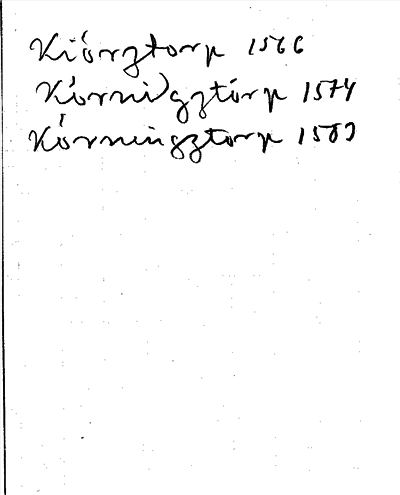 Kiórztorp 1566
Kórnigztórp 1574
Kórningztorp 1589